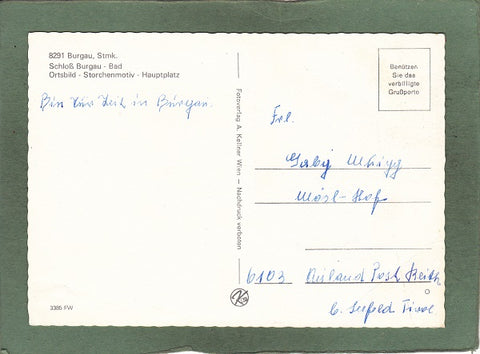 8291 Burgau, Stmk.
Schloß Burgau - Bad
Ortsbild - Storchenmotiv - Hauptplatz
Bin zur Zeit in Burgau.
Fotoverlag A. Kellner Wien — Nachdruck verboten
Benützen
Sie das
verbilligte
Grußporto
Frl.
Gaby
Mösl-Hof
6103 Post Reith
b. Seefeld Tirol
3385 FW